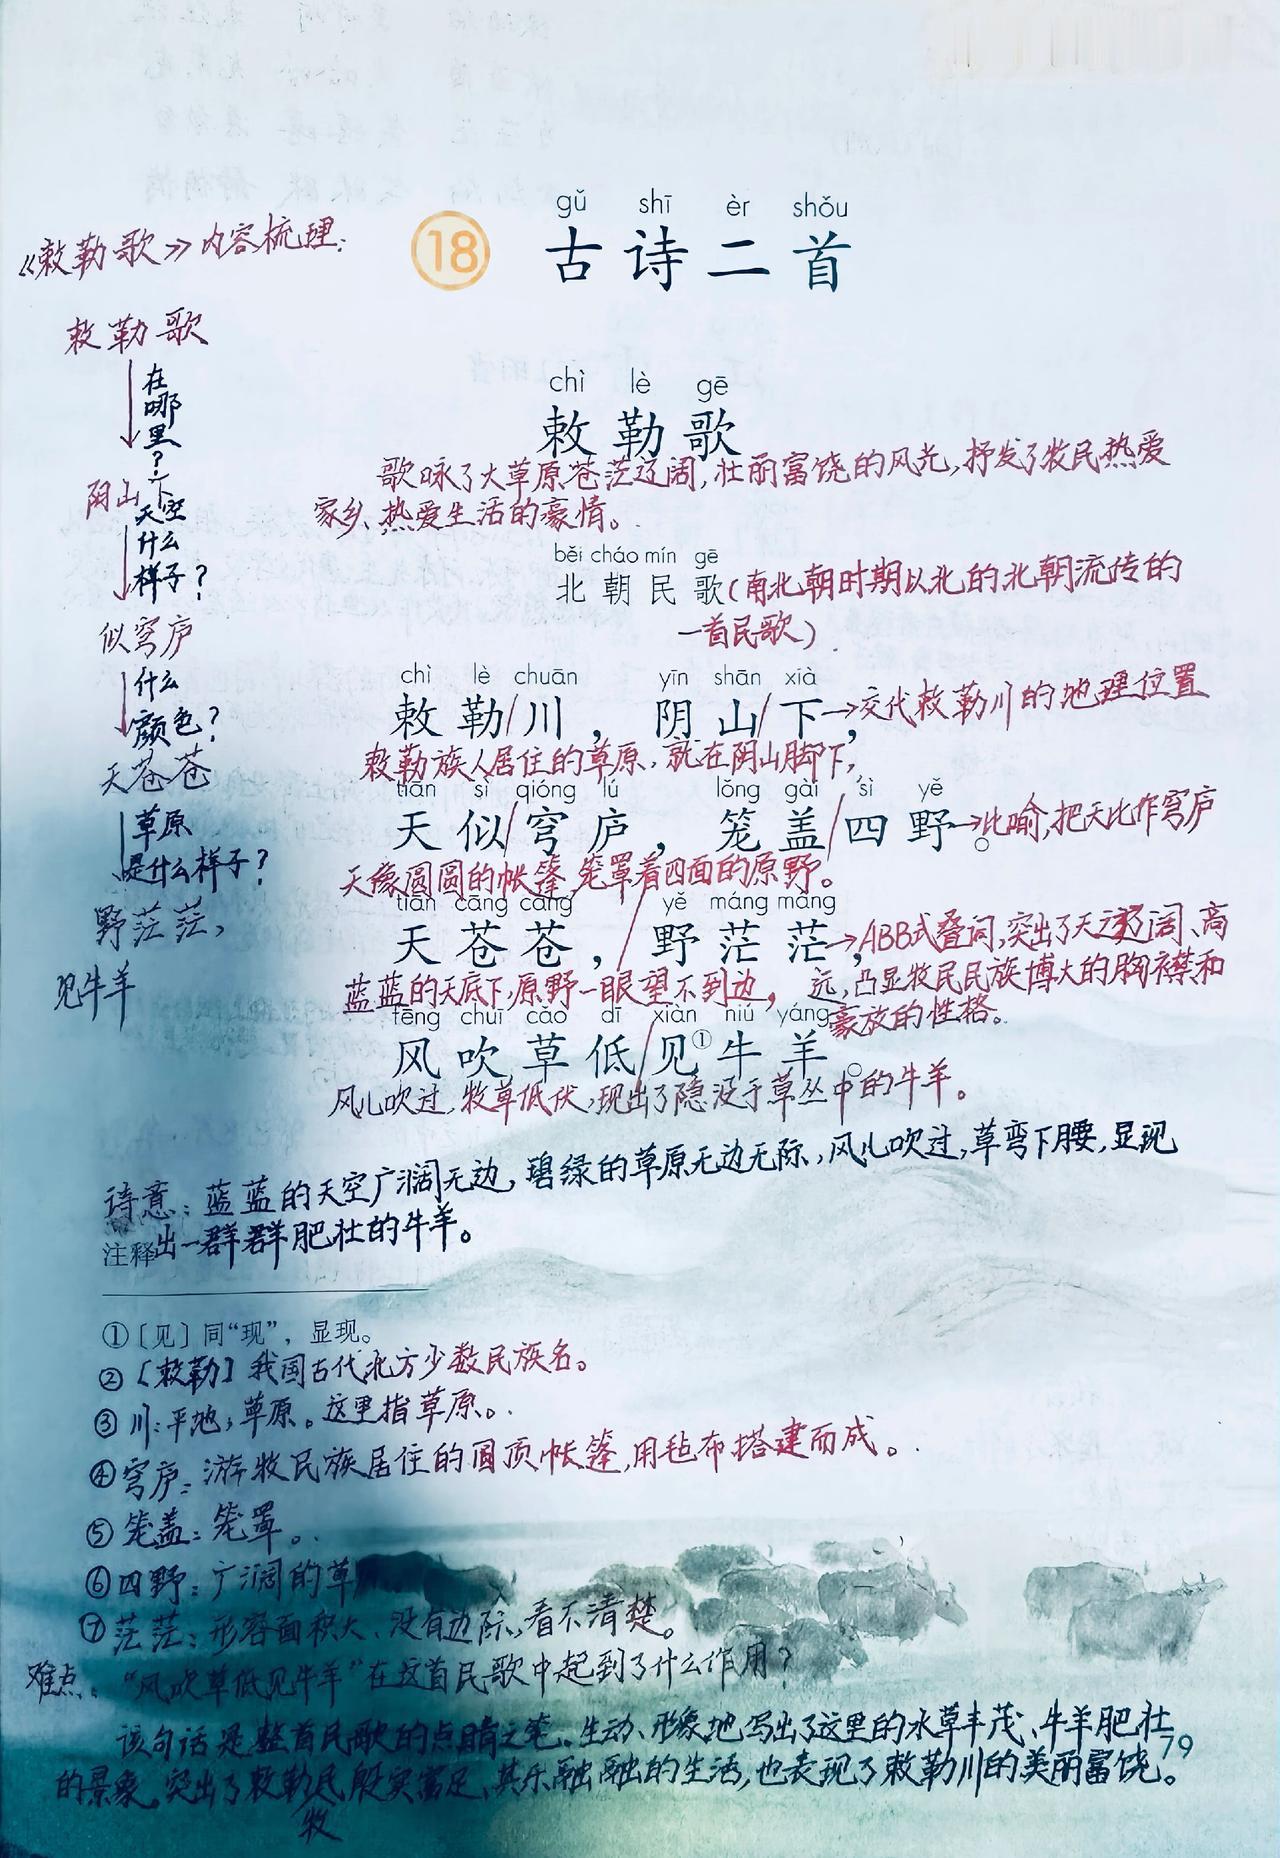 gǔ shī èr shǒu
18 古诗二首
《敕勒歌》内容梳理:
敕勒歌
在哪里?
阴山下
天空什么样子?
似穹庐
什么颜色?
天苍苍
草原是什么样子?
野茫茫,
见牛羊
chì lè gē
敕勒歌
歌咏了大草原苍茫辽阔,壮丽富饶的风光,抒发了牧民热爱
家乡、热爱生活的豪情。
běi cháo mín gē
北朝民歌(南北朝时期以北的北朝流传的
一首民歌)
chì lè chuān yīn shān xià
敕勒/川,阴山/下,→交代敕勒川的地理位置
敕勒族人居住的草原,就在阴山脚下,
tiān sì qióng lú lǒng gài sì yě
天似/穹庐,笼盖/四野。→比喻,把天比作穹庐
天像圆圆的帐篷,笼罩着四面的原野。
tiān cāng cāng yě máng máng
天苍苍,/野茫茫,→ABB式叠词,突出了天辽阔、高
蓝蓝的天底下,原野一眼望不到边,远,凸显牧民民族博大的胸襟和
豪放的性格。
fēng chuī cǎo dī xiàn niú yáng
风吹草低/见①牛羊。
风儿吹过,牧草低伏,现出了隐没于草丛中的牛羊。
诗意:蓝蓝的天空广阔无边,碧绿的草原无边无际,风儿吹过,草弯下腰,显现
出一群群肥壮的牛羊。
注释
①〔见〕同“现”,显现。
②【敕勒】我国古代北方少数民族名。
③川:平地,草原。这里指草原。
④穹庐:游牧民族居住的圆顶帐篷,用毡布搭建而成。
⑤笼盖:笼罩。
⑥四野:广阔的草
⑦茫茫:形容面积大、没有边际,看不清楚。
难点:“风吹草低见牛羊”在这首民歌中起到了什么作用?
该句话是整首民歌的点睛之笔。生动、形象地写出了这里的水草丰茂、牛羊肥壮
的景象。突出了敕勒牧民殷实富足、其乐融融的生活,也表现了敕勒川的美丽富饶。
79